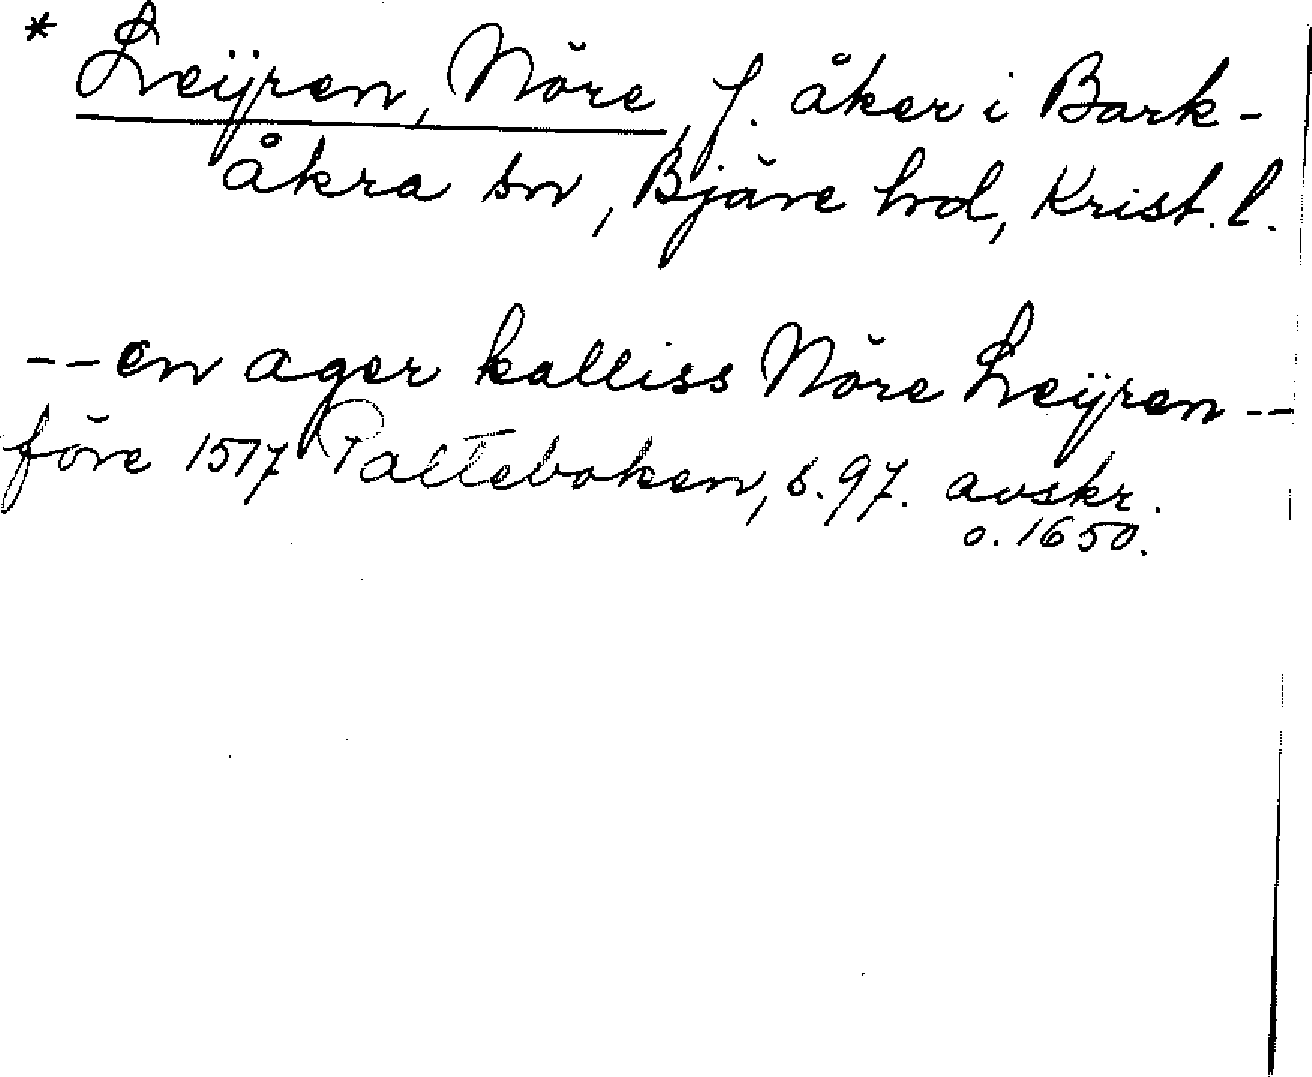 * Leÿren, Nöre, f. åker i Bark-
åkra sn, Bjäre hd, Krist. l.
-- en ager kalliss Nöre Leÿren --
före 1517 Palteboken, s. 97. avskr.
o. 1650.